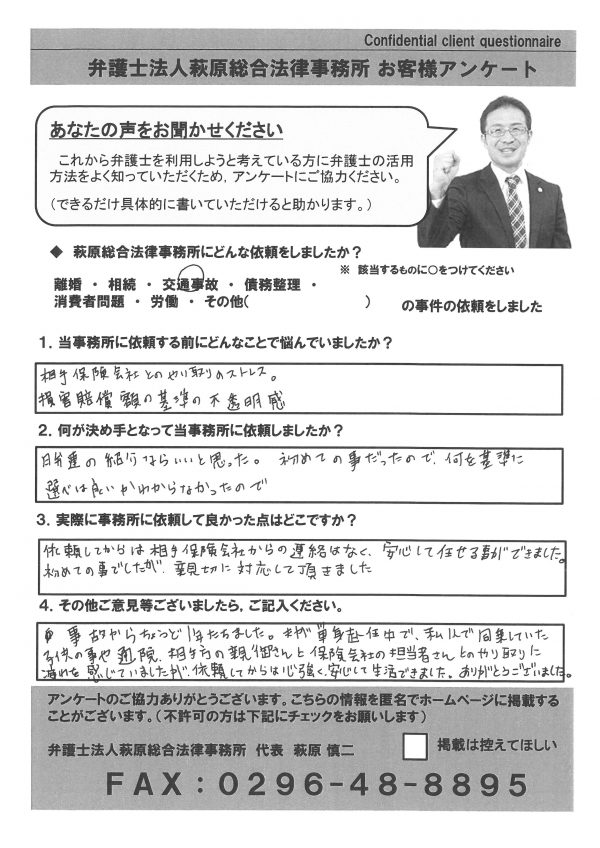 Confidential client questionnaire
弁護士法人萩原総合法律事務所 お客様アンケート
あなたの声をお聞かせください
これから弁護士を利用しようと考えている方に弁護士の活用
方法をよく知っていただくため,アンケートにご協力ください。
(できるだけ具体的に書いていただけると助かります。)
◆ 萩原総合法律事務所にどんな依頼をしましたか?
※ 該当するものに○をつけてください
離婚 ・ 相続 ・ 交通事故 ・ 債務整理 ・
消費者問題 ・ 労働 ・ その他( ) の事件の依頼をしました
1.当事務所に依頼する前にどんなことで悩んでいましたか?
相手保険会社とのやり取りのストレス。
損害賠償額の基準の不透明感
2.何が決め手となって当事務所に依頼しましたか?
の紹介ならいいと思った。 初めての事だったので、何を基準に
選べば良いかわからなかったので
3.実際に事務所に依頼して良かった点はどこですか?
依頼してからは相手保険会社からの連絡はなく、安心して任せる事ができました。
初めての事でしたが、親切に対応して頂きました
4.その他ご意見等ございましたら,ご記入ください。
事故からちょうど1年たちました。夫が単身赴任中で、私1人で同乗していた
子供の事や通院、相手方の親御さんと保険会社の担当者さんとのやり取りに
を感じていましたが、依頼してからは心強く、安心して生活できました。ありがとうございました。
アンケートのご協力ありがとうございます。こちらの情報を匿名でホームページに掲載する
ことがございます。(不許可の方は下記にチェックをお願いします)
弁護士法人萩原総合法律事務所 代表 萩原 慎二
掲載は控えてほしい
FAX:0296-48-8895